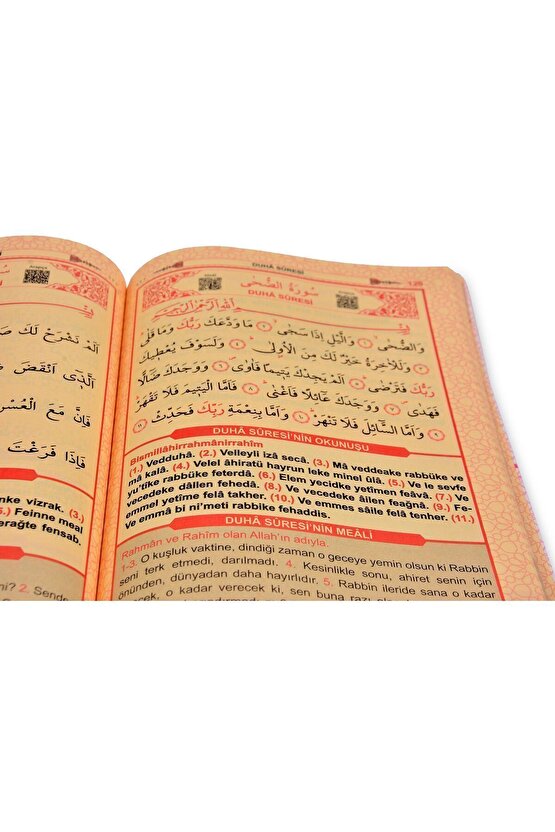 DUHÂ SÛRESİ
سُورَةُ الضُّحٰى
DUHÂ SÛRESİ
وَالضُّحٰى ﴿١﴾ وَالَّيْلِ اِذَا سَجٰى ﴿٢﴾ مَا وَدَّعَكَ رَبُّكَ وَمَا قَلٰى
﴿٣﴾ وَلَلْاٰخِرَةُ خَيْرٌ لَكَ مِنَ الْاُولٰى ﴿٤﴾ وَلَسَوْفَ يُعْطٖيكَ
رَبُّكَ فَتَرْضٰى ﴿٥﴾ اَلَمْ يَجِدْكَ يَتٖيمًا فَاٰوٰى ﴿٦﴾ وَوَجَدَكَ ضَالًّا
فَهَدٰى ﴿٧﴾ وَوَجَدَكَ عَائِلًا فَاَغْنٰى ﴿٨﴾ فَاَمَّا الْيَتٖيمَ فَلَا تَقْهَرْ
﴿٩﴾ وَاَمَّا السَّائِلَ فَلَا تَنْهَرْ ﴿١٠﴾ وَاَمَّا بِنِعْمَةِ رَبِّكَ فَحَدِّثْ ﴿١١﴾
DUHÂ SÛRESİ'NİN OKUNUŞU
Bismillâhirrahmânirrahîm
(1.) Vedduhâ. (2.) Velleyli izâ secâ. (3.) Mâ veddeake rabbüke ve
mâ kalâ. (4.) Velel âhiratü hayrun leke minel ûlâ. (5.) Ve le sevfe
yu'tîke rabbüke feterdâ. (6.) Elem yecidke yetîmen feâvâ. (7.) Ve
vecedeke dâllen fehedâ. (8.) Ve vecedeke âilen feağnâ. (9.) Fe-
emmel yetîme felâ takher. (10.) Ve emmes sâile felâ tenher. (11.)
Ve emmâ bi ni'meti rabbike fehaddis.
DUHÂ SÛRESİ'NİN MEÂLİ
Rahmân ve Rahîm olan Allah'ın adıyla.
1-3. O kuşluk vaktine, dindiği zaman o geceye yemin olsun ki Rabbin
seni terk etmedi, darılmadı. 4. Kesinlikle sonu, ahiret senin için
önünden, dünyadan daha hayırlıdır. 5. Rabbin ileride sana o kadar
verecek, o kadar verecek ki, sen buna razı
اَلَمْ نَشْرَحْ لَكَ
الَّذٖى اَنْقَضَ
فَاِنَّ مَعَ الْعُسْرِ
فَاِذَا فَرَغْتَ
nke vizrak. (3.)
5.) Feinne meal
erağte fensab.
2. Sende